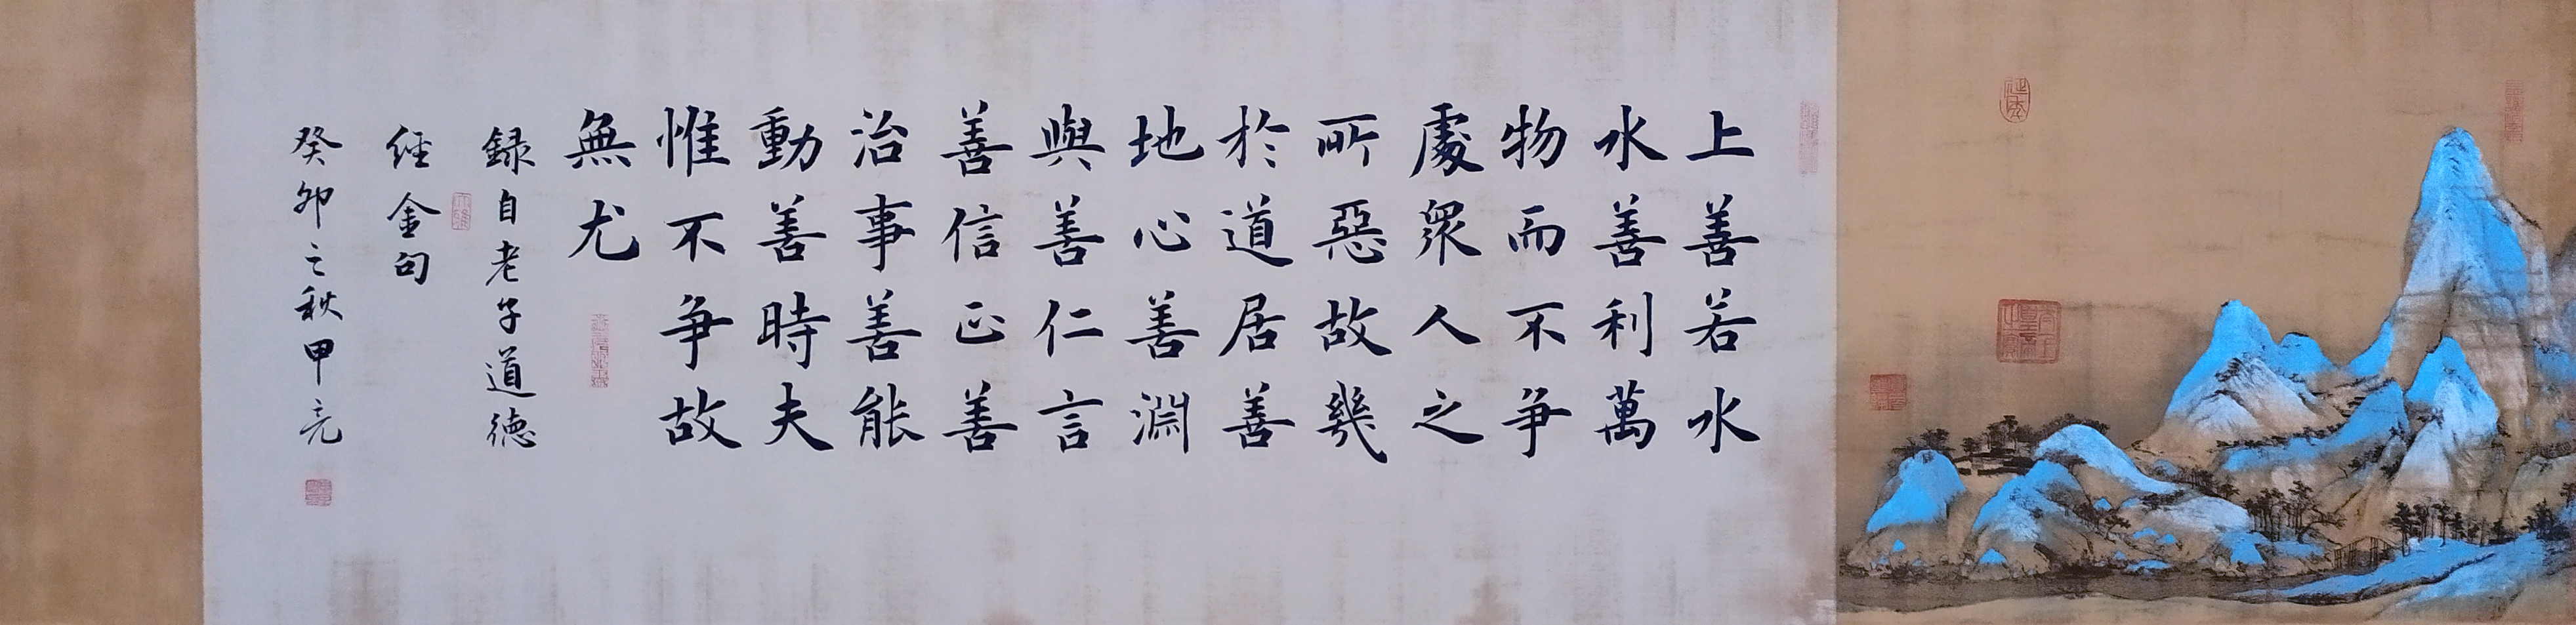 上善若水
水善利萬
物而不争
處衆人之
所惡故幾
於道居善
地心善淵
與善仁言
善信正善
治事善能
動善時夫
惟不争故
無尤
録自老子道德
經金句
癸卯之秋甲亮